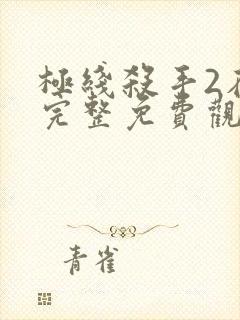 極綫殺手2
完整免費觀
青雀